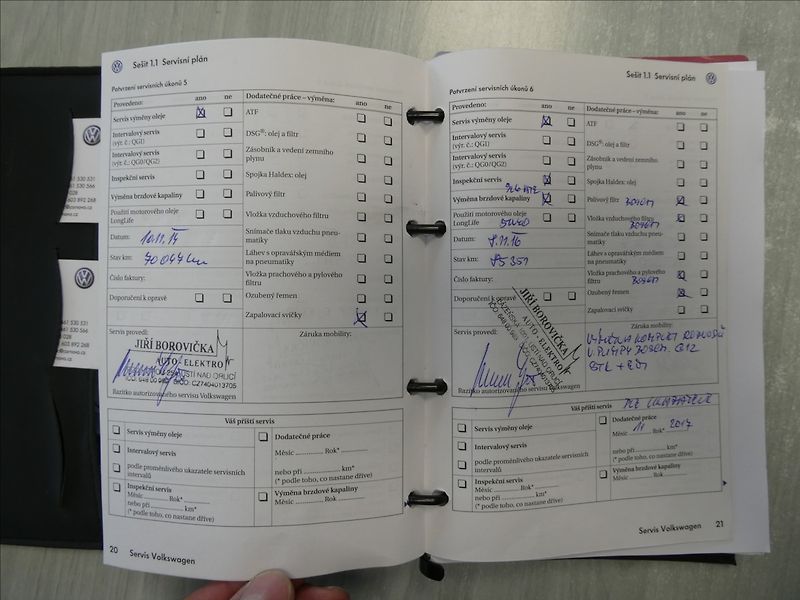 Sešit 1.1 Servisní plán
Potvrzení servisních úkonů 5
Provedeno: ano ne Dodatečné práce – výměna: ano ne
Servis výměny oleje ATF
Intervalový servis
(výr. č.: QG1) DSG®: olej a filtr
Intervalový servis
(výr. č.: QG0/QG2) Zásobník a vedení zemního
plynu
Inspekční servis Spojka Haldex: olej
Výměna brzdové kapaliny Palivový filtr
Použití motorového oleje
LongLife Vložka vzduchového filtru
Datum: 10.11.14 Snímače tlaku vzduchu pneu-
matiky
Stav km: 70044 km Láhev s opravářským médiem
na pneumatiky
Číslo faktury: Vložka prachového a pylového
filtru
Doporučení k opravě Ozubený řemen
Zapalovací svíčky
Servis provedl: Záruka mobility:
JIŘÍ BOROVIČKA
AUTO - ELEKTRO
Razítko autorizovaného servisu Volkswagen
Váš příští servis
Servis výměny oleje Dodatečné práce
Intervalový servis Měsíc ............ Rok* ............
podle proměnlivého ukazatele servisních
intervalů nebo při ............ km*
(* podle toho, co nastane dříve)
Inspekční servis Výměna brzdové kapaliny
Měsíc ............ Rok* ............ Měsíc ............ Rok ............
nebo při ............ km*
(* podle toho, co nastane dříve)
20 Servis Volkswagen
Sešit 1.1 Servisní plán
Potvrzení servisních úkonů 6
Provedeno: ano ne Dodatečné práce – výměna: ano ne
Servis výměny oleje ATF
Intervalový servis
(výr. č.: QG1) DSG®: olej a filtr
Intervalový servis
(výr. č.: QG0/QG2) Zásobník a vedení zemního
plynu
Inspekční servis Spojka Haldex: olej
Výměna brzdové kapaliny Palivový filtr BOSCH
Použití motorového oleje
LongLife 5W40 Vložka vzduchového filtru BOSCH
Datum: 8.11.16 Snímače tlaku vzduchu pneu-
matiky
Stav km: 85351 Láhev s opravářským médiem
na pneumatiky
Číslo faktury: Vložka prachového a pylového
filtru BOSCH
Doporučení k opravě Ozubený řemen
Zapalovací svíčky
Servis provedl: Záruka mobility:
JIŘÍ BOROVIČKA
AUTO - ELEKTRO
VÝMĚNA KOMPLET ROZVODŮ
V. PUMPY BOSCH G12
STK + EM
Razítko autorizovaného servisu Volkswagen
Váš příští servis
Servis výměny oleje Dodatečné práce
Měsíc 11 Rok* 2017
Intervalový servis
podle proměnlivého ukazatele servisních
intervalů nebo při ............ km*
(* podle toho, co nastane dříve)
Inspekční servis Výměna brzdové kapaliny
Měsíc ............ Rok* ............ Měsíc ............ Rok ............
nebo při ............ km*
(* podle toho, co nastane dříve)
Servis Volkswagen 21